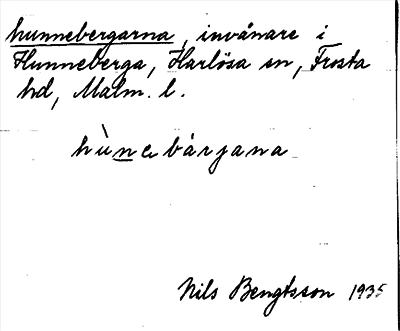 hunnebergarna, invånare i
Hunneberga, Harlösa sn, Frosta
hd, Malm. l.
hùnebàrjana
Nils Bengtsson 1935